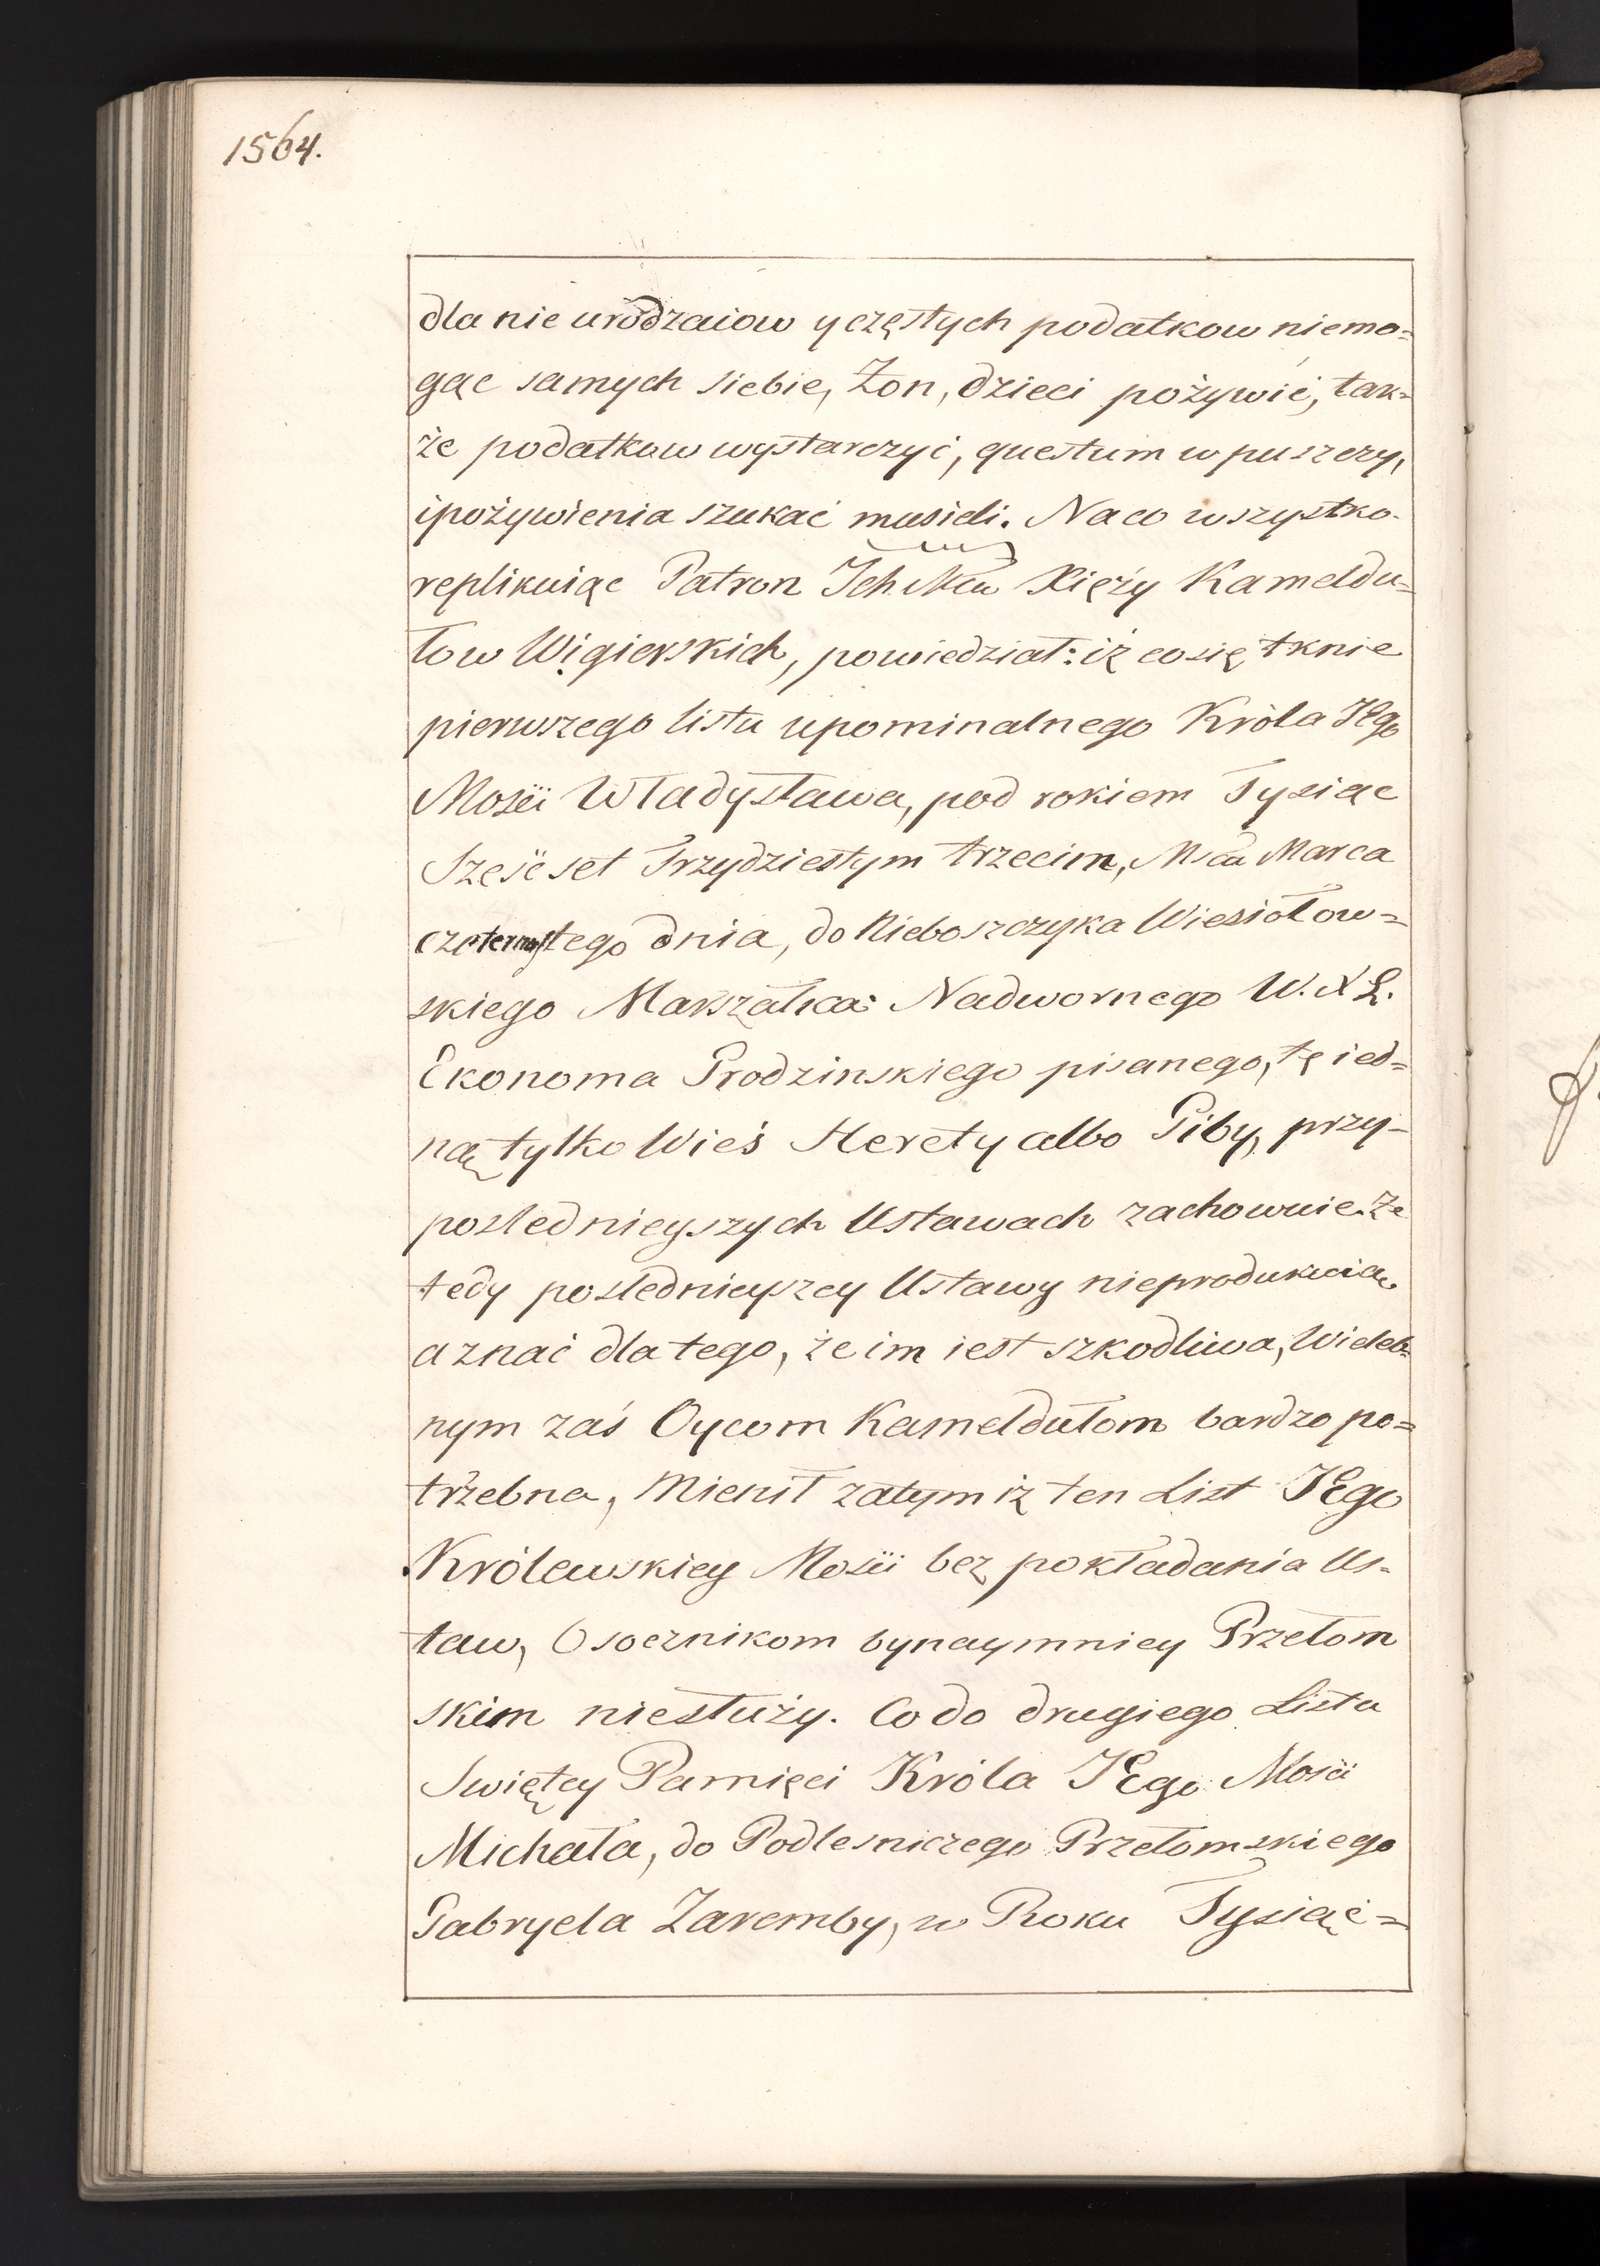 1564.
dla nie urodzaiow y częstych podatkow niemo=
gąc samych siebie, Żon, dzieci pożywić, tak=
że podatkow wystarczyć, questum w puszczy,
i pożywienia szukać musieli. Na co wszystko
replikuiąc Patron Ich Mciu Xięży Kameldu=
łow Wigierskich, powiedział: iż co się tknie
pierwszego listu upominalnego Króla JEgo
Mości Władysława, pod rokiem Tysiąc
Sześćset Trzydziestym trzecim, Msca Marca
czternastego dnia, do Nieboszczyka Wiesiołow=
skiego Marszałka Nadwornego W. X L.
Ekonoma Grodzinskiego pisanego, tę ied=
ną tylko Wieś Herety albo Giby, przy
poslednieyszych Ustawach zachowuie. Że
tedy poslednieyszey Ustawy nieprodukuią
a znać dla tego, że im iest szkodliwa, Wieleb=
nym zaś Oycom Kamedułom bardzo po=
trzebna, Mienił zatym iż ten List JEgo
Królewskiey Mości bez pokładania Us=
taw, Osocznikom bynaymniey Przełom
skim niesłuży. Co do drugiego Listu
Swiętey Pamięci Króla JEgo Mości
Michała, do Podlesniczego Przełomskiego
Gabryela Zaremby, w Roku Tysiąc=